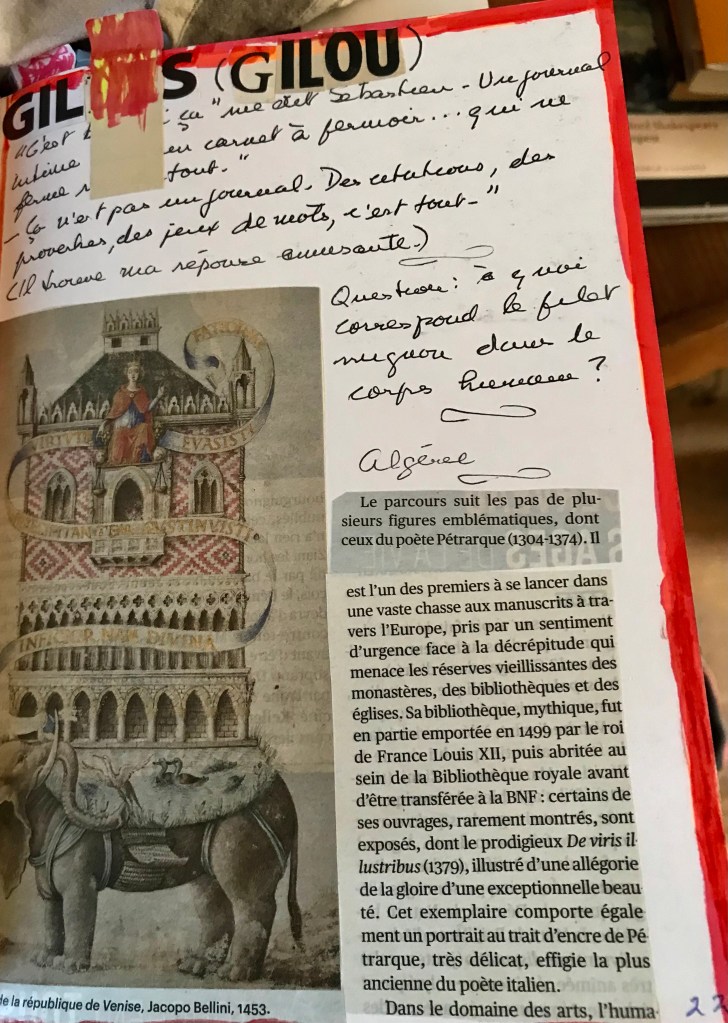 GIL S (GILOU)
"C'est ça" me dit Sébastien - Un journal
intime en carnet à fermoir... qui ne
ferme tout."
- Ça n'est pas un journal. Des citations, des
proverbes, des jeux de mots, c'est tout - "
(Il trouve ma réponse amusante.)
Question : à quoi
correspond le filet
mignon dans le
corps humain ?
Le parcours suit les pas de plu-
sieurs figures emblématiques, dont
ceux du poète Pétrarque (1304-1374). Il
est l'un des premiers à se lancer dans
une vaste chasse aux manuscrits à tra-
vers l'Europe, pris par un sentiment
d'urgence face à la décrépitude qui
menace les réserves vieillissantes des
monastères, des bibliothèques et des
églises. Sa bibliothèque, mythique, fut
en partie emportée en 1499 par le roi
de France Louis XII, puis abritée au
sein de la Bibliothèque royale avant
d'être transférée à la BNF : certains de
ses ouvrages, rarement montrés, sont
exposés, dont le prodigieux De viris il-
lustribus (1379), illustré d'une allégorie
de la gloire d'une exceptionnelle beau-
té. Cet exemplaire comporte égale
ment un portrait au trait d'encre de Pé-
trarque, très délicat, effigie la plus
ancienne du poète italien.
Dans le domaine des arts, l'huma-
EVASISTI
de la république de Venise, Jacopo Bellini, 1453.